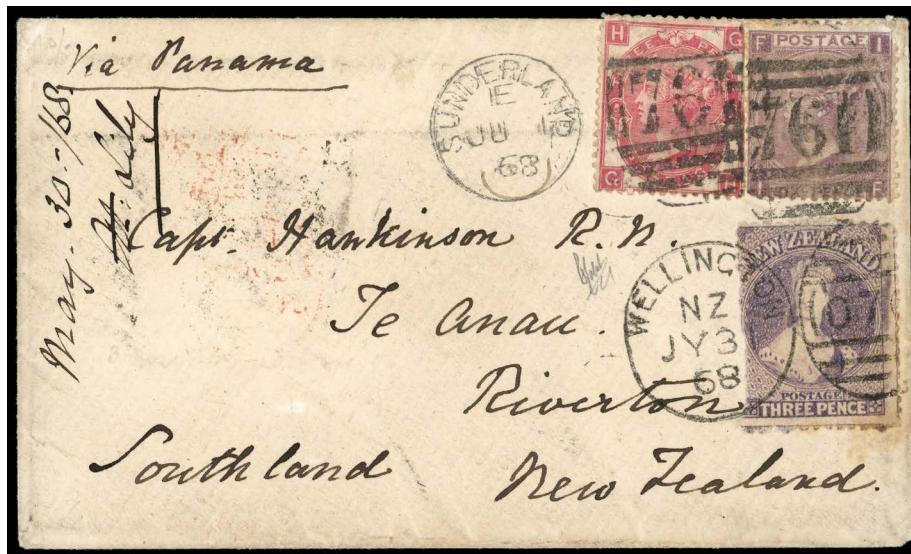 Via Panama
May - 30 - /68
SUNDERLAND
E
JU
68
H G
G H
761
F I
POSTAGE
SIX PENCE
I F
760
Capt. Hankinson R.N.
Te Anau.
Riverton
Southland
New Zealand.
WELLINGTON
NZ
JY 3
68
NEW ZEALAND
POSTAGE
THREE PENCE
07